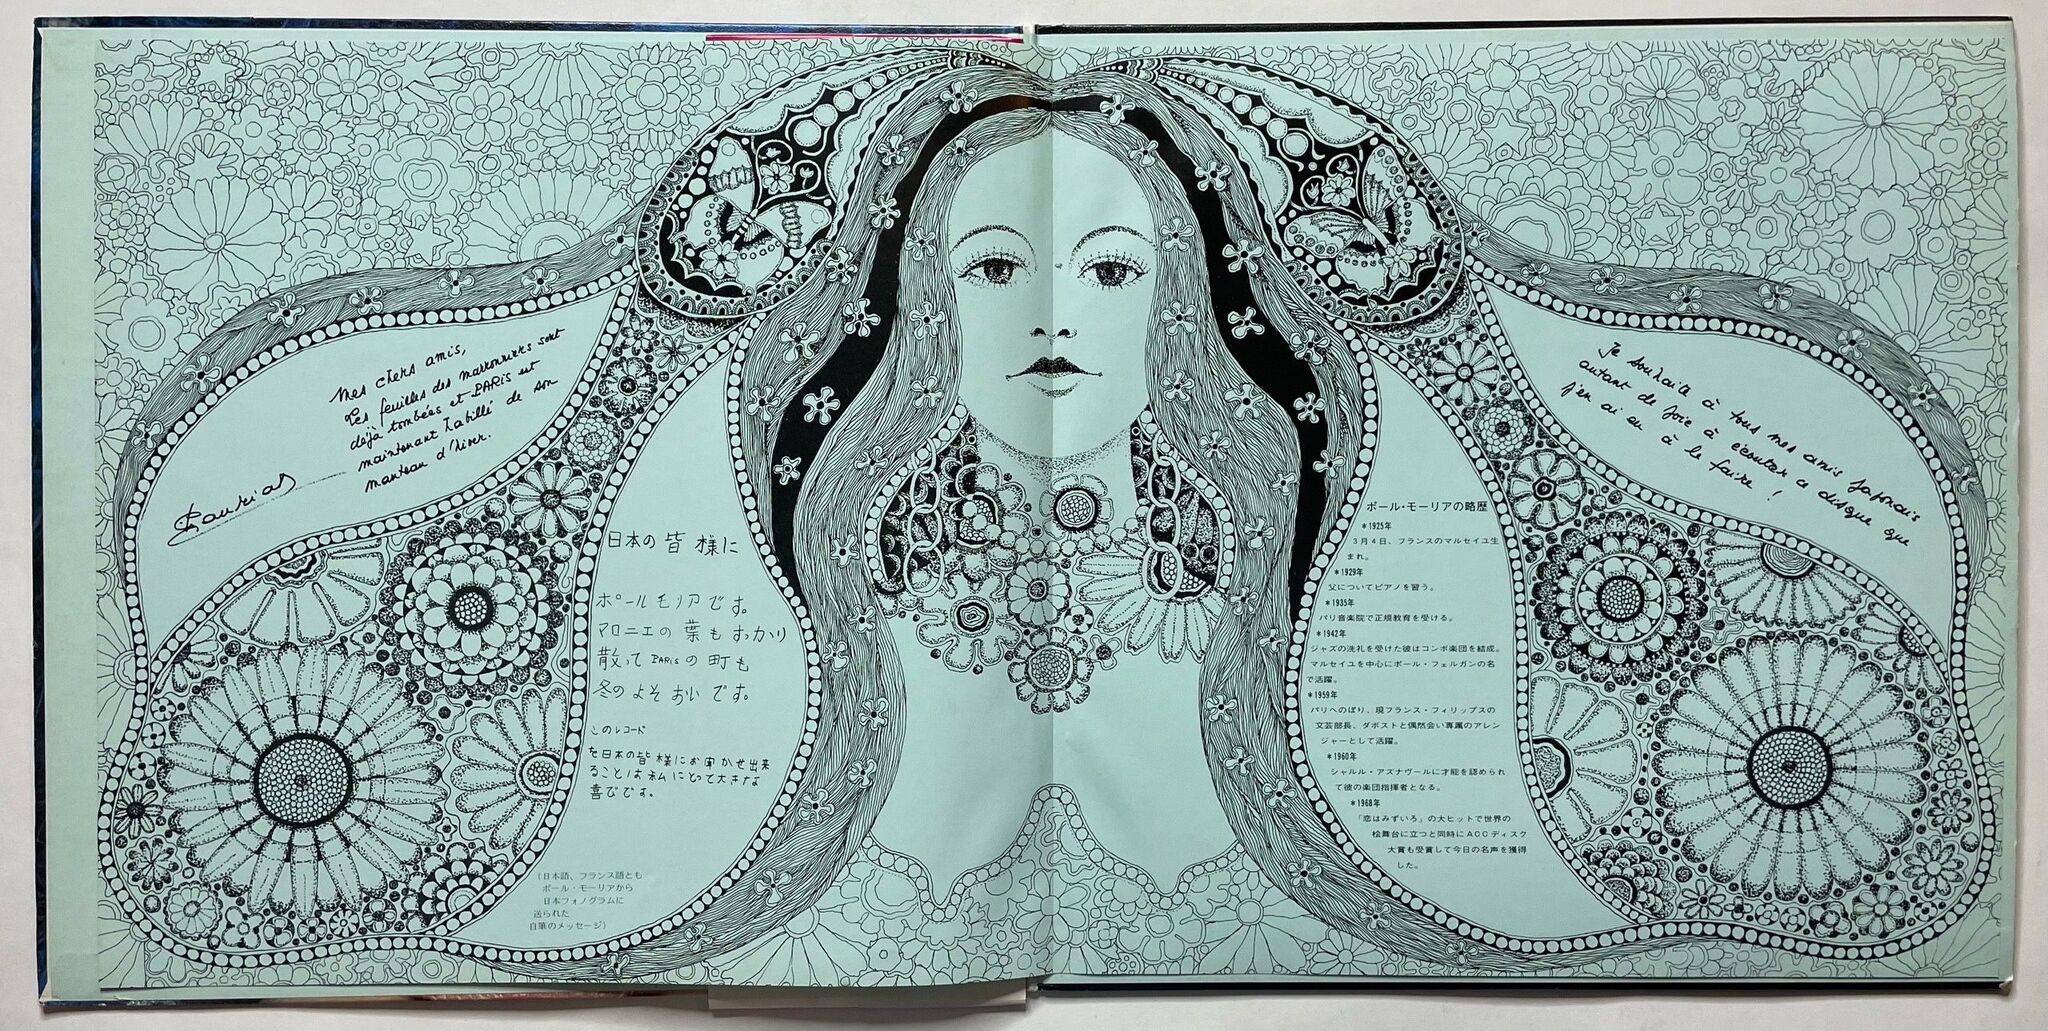 Mes chers amis,
Les feuilles des marronniers sont
déjà tombées et PARis est
maintenant habillé de son
manteau d'hiver.
Pauriat
日本の皆様に
ポールモリアです。
マロニエの葉もすっかり
散って PARiSの町も
冬のよそおいです。
このレコード
を日本の皆様にお聞かせ出来
ることは私にとって大きな
喜びです。
(日本語、フランス語とも
ポール・モーリアから
日本フォノグラムに
送られた
自筆のメッセージ)
ポール・モーリアの略歴
*1925年
3月4日、フランスのマルセイユ生
まれ。
*1929年
父についてピアノを習う。
*1935年
パリ音楽院で正規教育を受ける。
*1942年
ジャズの洗礼を受けた彼はコンボ楽団を結成。
マルセイユを中心にポール・フェルガンの名
で活躍。
*1959年
パリへのぼり、現フランス・フィリップスの
文芸部長、ダボストと偶然会い専属のアレン
ジャーとして活躍。
*1960年
シャルル・アズナヴールに才能を認められ
て彼の楽団指揮者となる。
*1968年
「恋はみずいろ」の大ヒットで世界の
桧舞台に立つと同時にACCディスク
大賞も受賞して今日の名声を獲得
した。
Je souhaite à tous mes amis Japonais
autant de joie à écouter ce disque que
j'en ai eu à le faire !